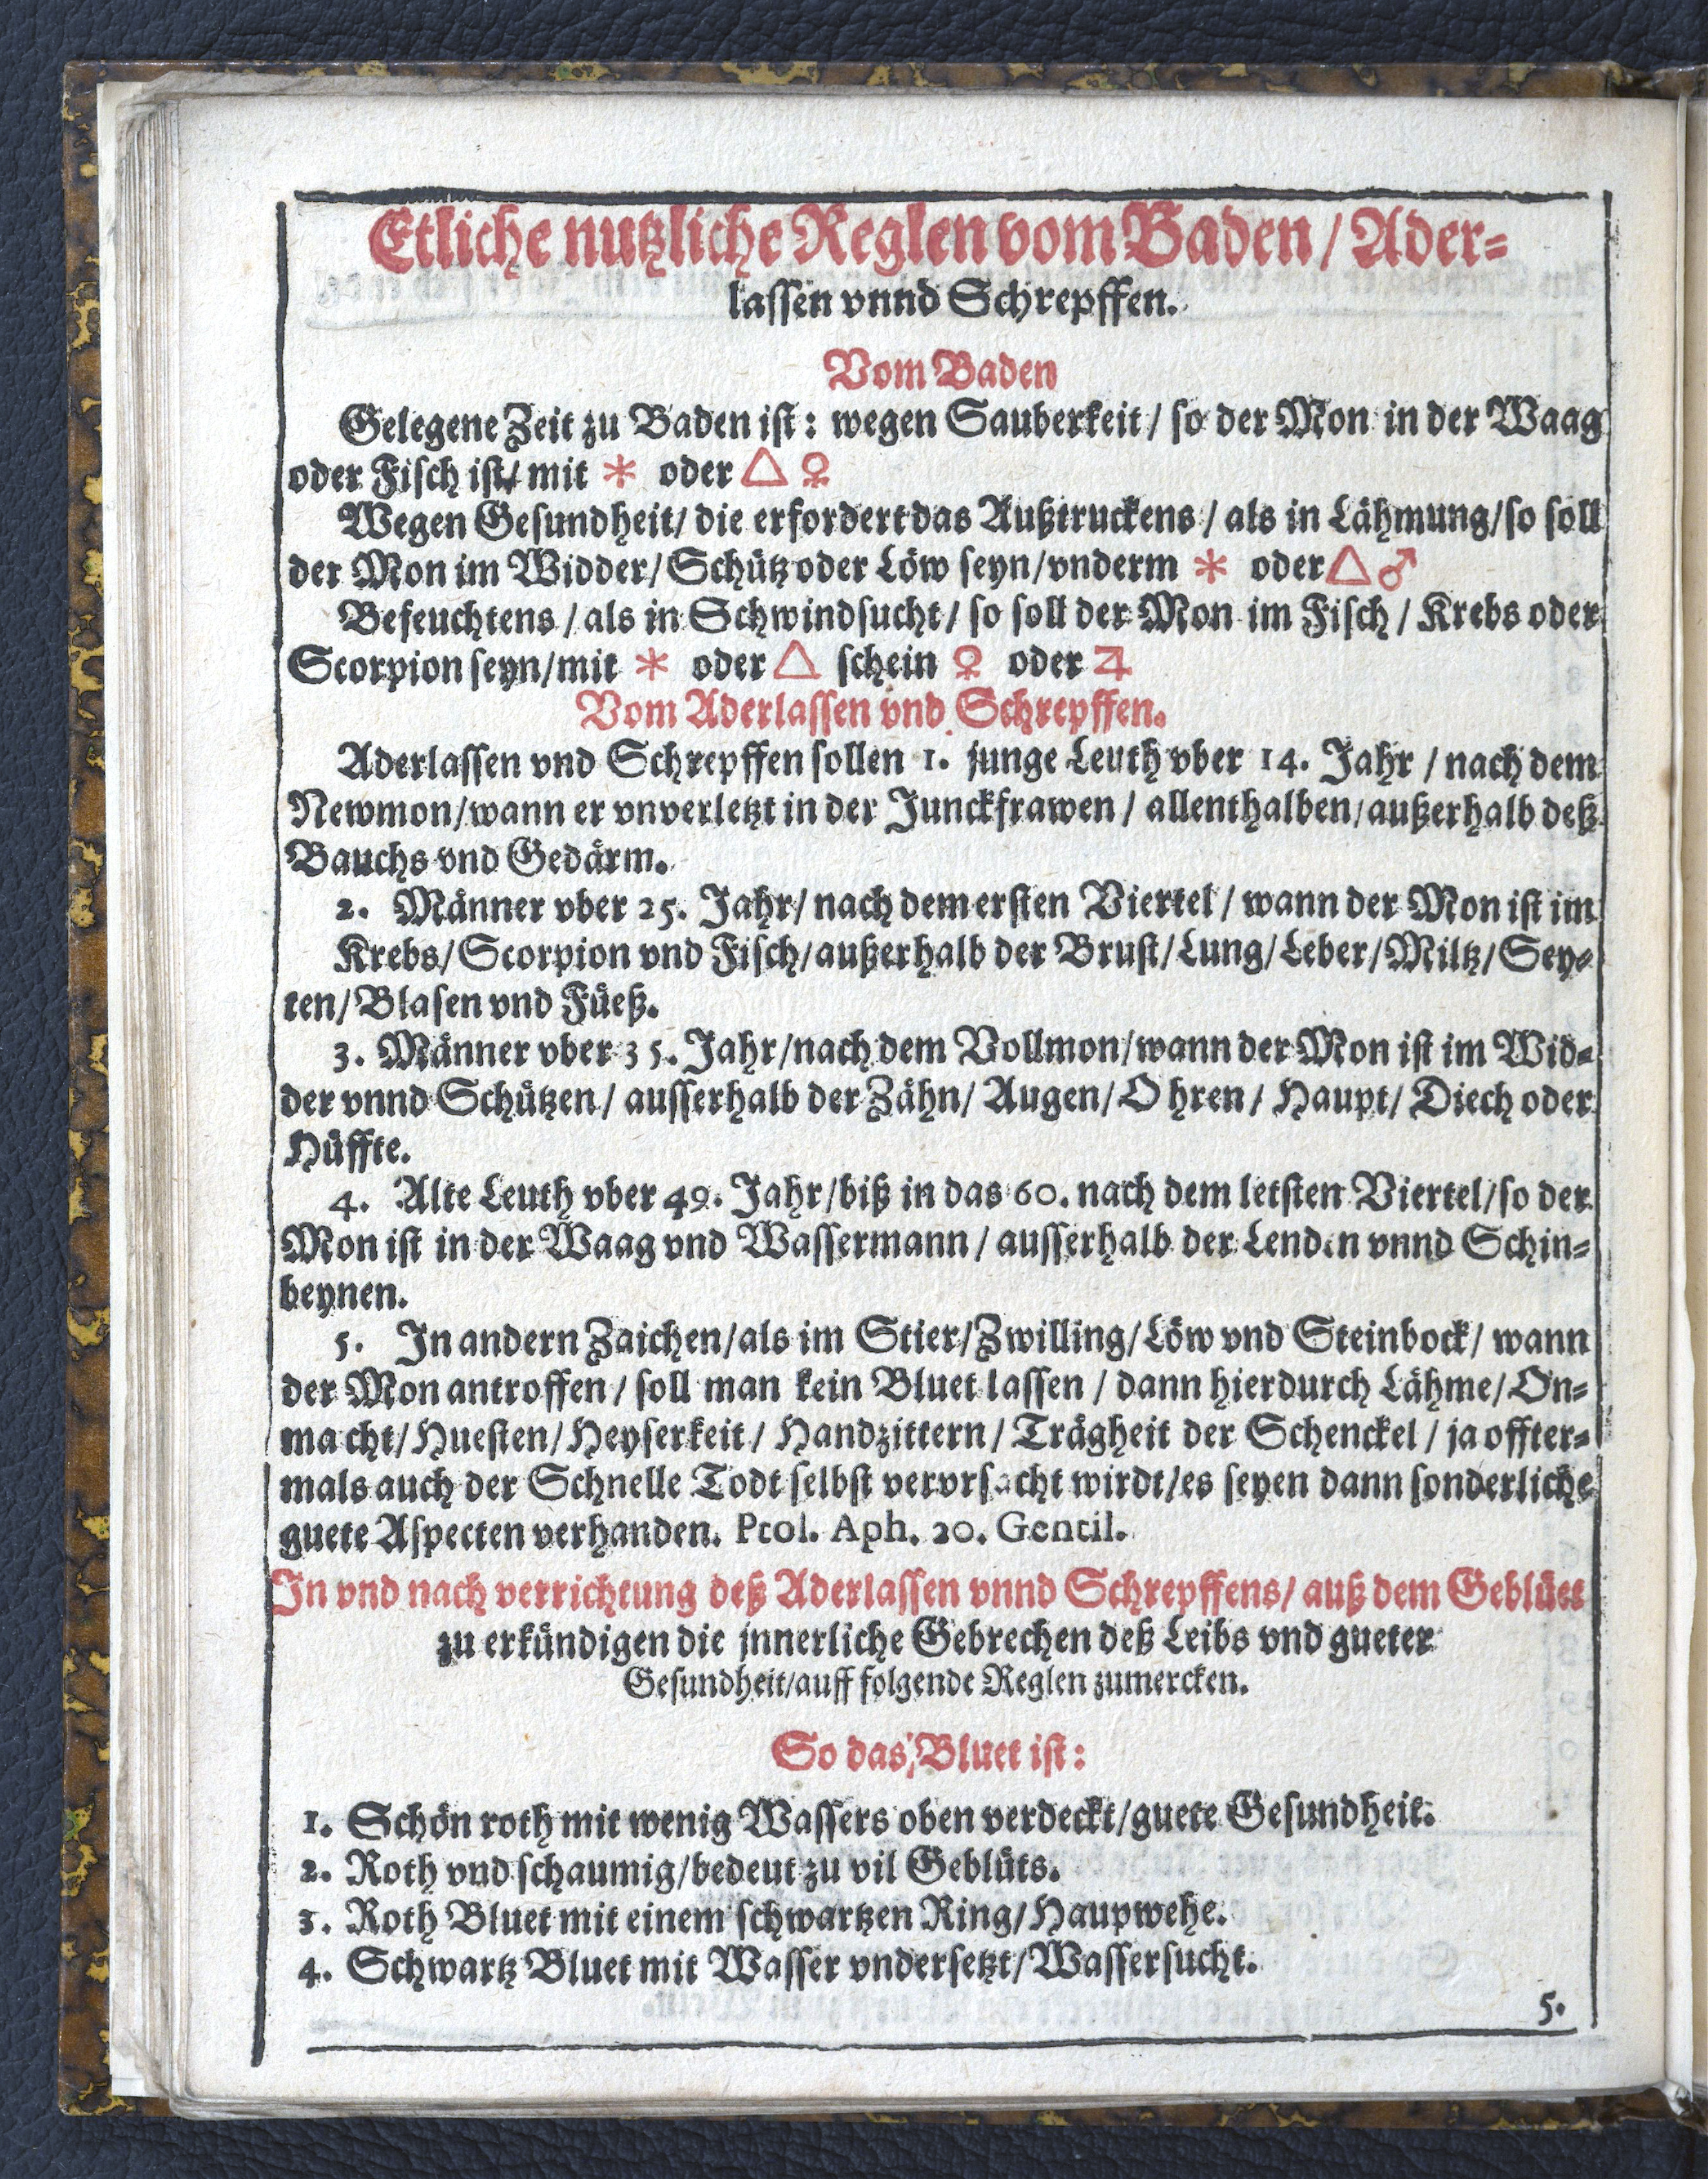 Etliche nutzliche Reglen vom Baden / Ader-
lassen vnnd Schrepffen.
Vom Baden
Gelegene Zeit zu Baden ist: wegen Sauberkeit / so der Mon in der Waag
oder Fisch ist / mit ⚹ oder △ ♀
Wegen Gesundheit / die erfordert das Außtruckens / als in Lähmung / so soll
der Mon im Widder / Schütz oder Löw seyn / vnderm ⚹ oder △ ♂
Befeuchtens / als in Schwindsucht / so soll der Mon im Fisch / Krebs oder
Scorpion seyn / mit ⚹ oder △ schein ♀ oder ♃
Vom Aderlassen vnd Schrepffen.
Aderlassen vnd Schrepffen sollen 1. junge Leuth vber 14. Jahr / nach dem
Newmon / wann er vnverletzt in der Junckfrawen / allenthalben / außerhalb deß
Bauchs vnd Gedärm.
2. Männer vber 25. Jahr / nach dem ersten Viertel / wann der Mon ist im
Krebs / Scorpion vnd Fisch / außerhalb der Brust / Lung / Leber / Miltz / Sey-
ten / Blasen vnd Füeß.
3. Männer vber 35. Jahr / nach dem Vollmon / wann der Mon ist im Wid-
der vnnd Schützen / ausserhalb der Zähn / Augen / Ohren / Haupt / Diech oder
Hüffte.
4. Alte Leuth vber 49. Jahr / biß in das 60. nach dem letsten Viertel / so der
Mon ist in der Waag vnd Wassermann / ausserhalb der Lenden vnnd Schin-
beynen.
5. In andern Zaichen / als im Stier / Zwilling / Löw vnd Steinbock / wann
der Mon antroffen / soll man kein Bluet lassen / dann hierdurch Lähme / On-
macht / Huesten / Heyserkeit / Handzittern / Trägheit der Schenckel / ja offter-
mals auch der Schnelle Todt selbst vervrsacht wirdt / es seyen dann sonderliche
guete Aspecten verhanden. Ptol. Aph. 20. Gentil.
In vnd nach verrichtung deß Aderlassen vnnd Schrepffens / auß dem Geblüet
zu erkündigen die jnnerliche Gebrechen deß Leibs vnd gueter
Gesundheit / auff folgende Reglen zumercken.
So das Bluet ist:
1. Schön roth mit wenig Wassers oben verdeckt / guete Gesundheit.
2. Roth vnd schaumig / bedeut zu vil Geblüts.
3. Roth Bluet mit einem schwartzen Ring / Haupwehe.
4. Schwartz Bluet mit Wasser vndersetzt / Wassersucht.
5.